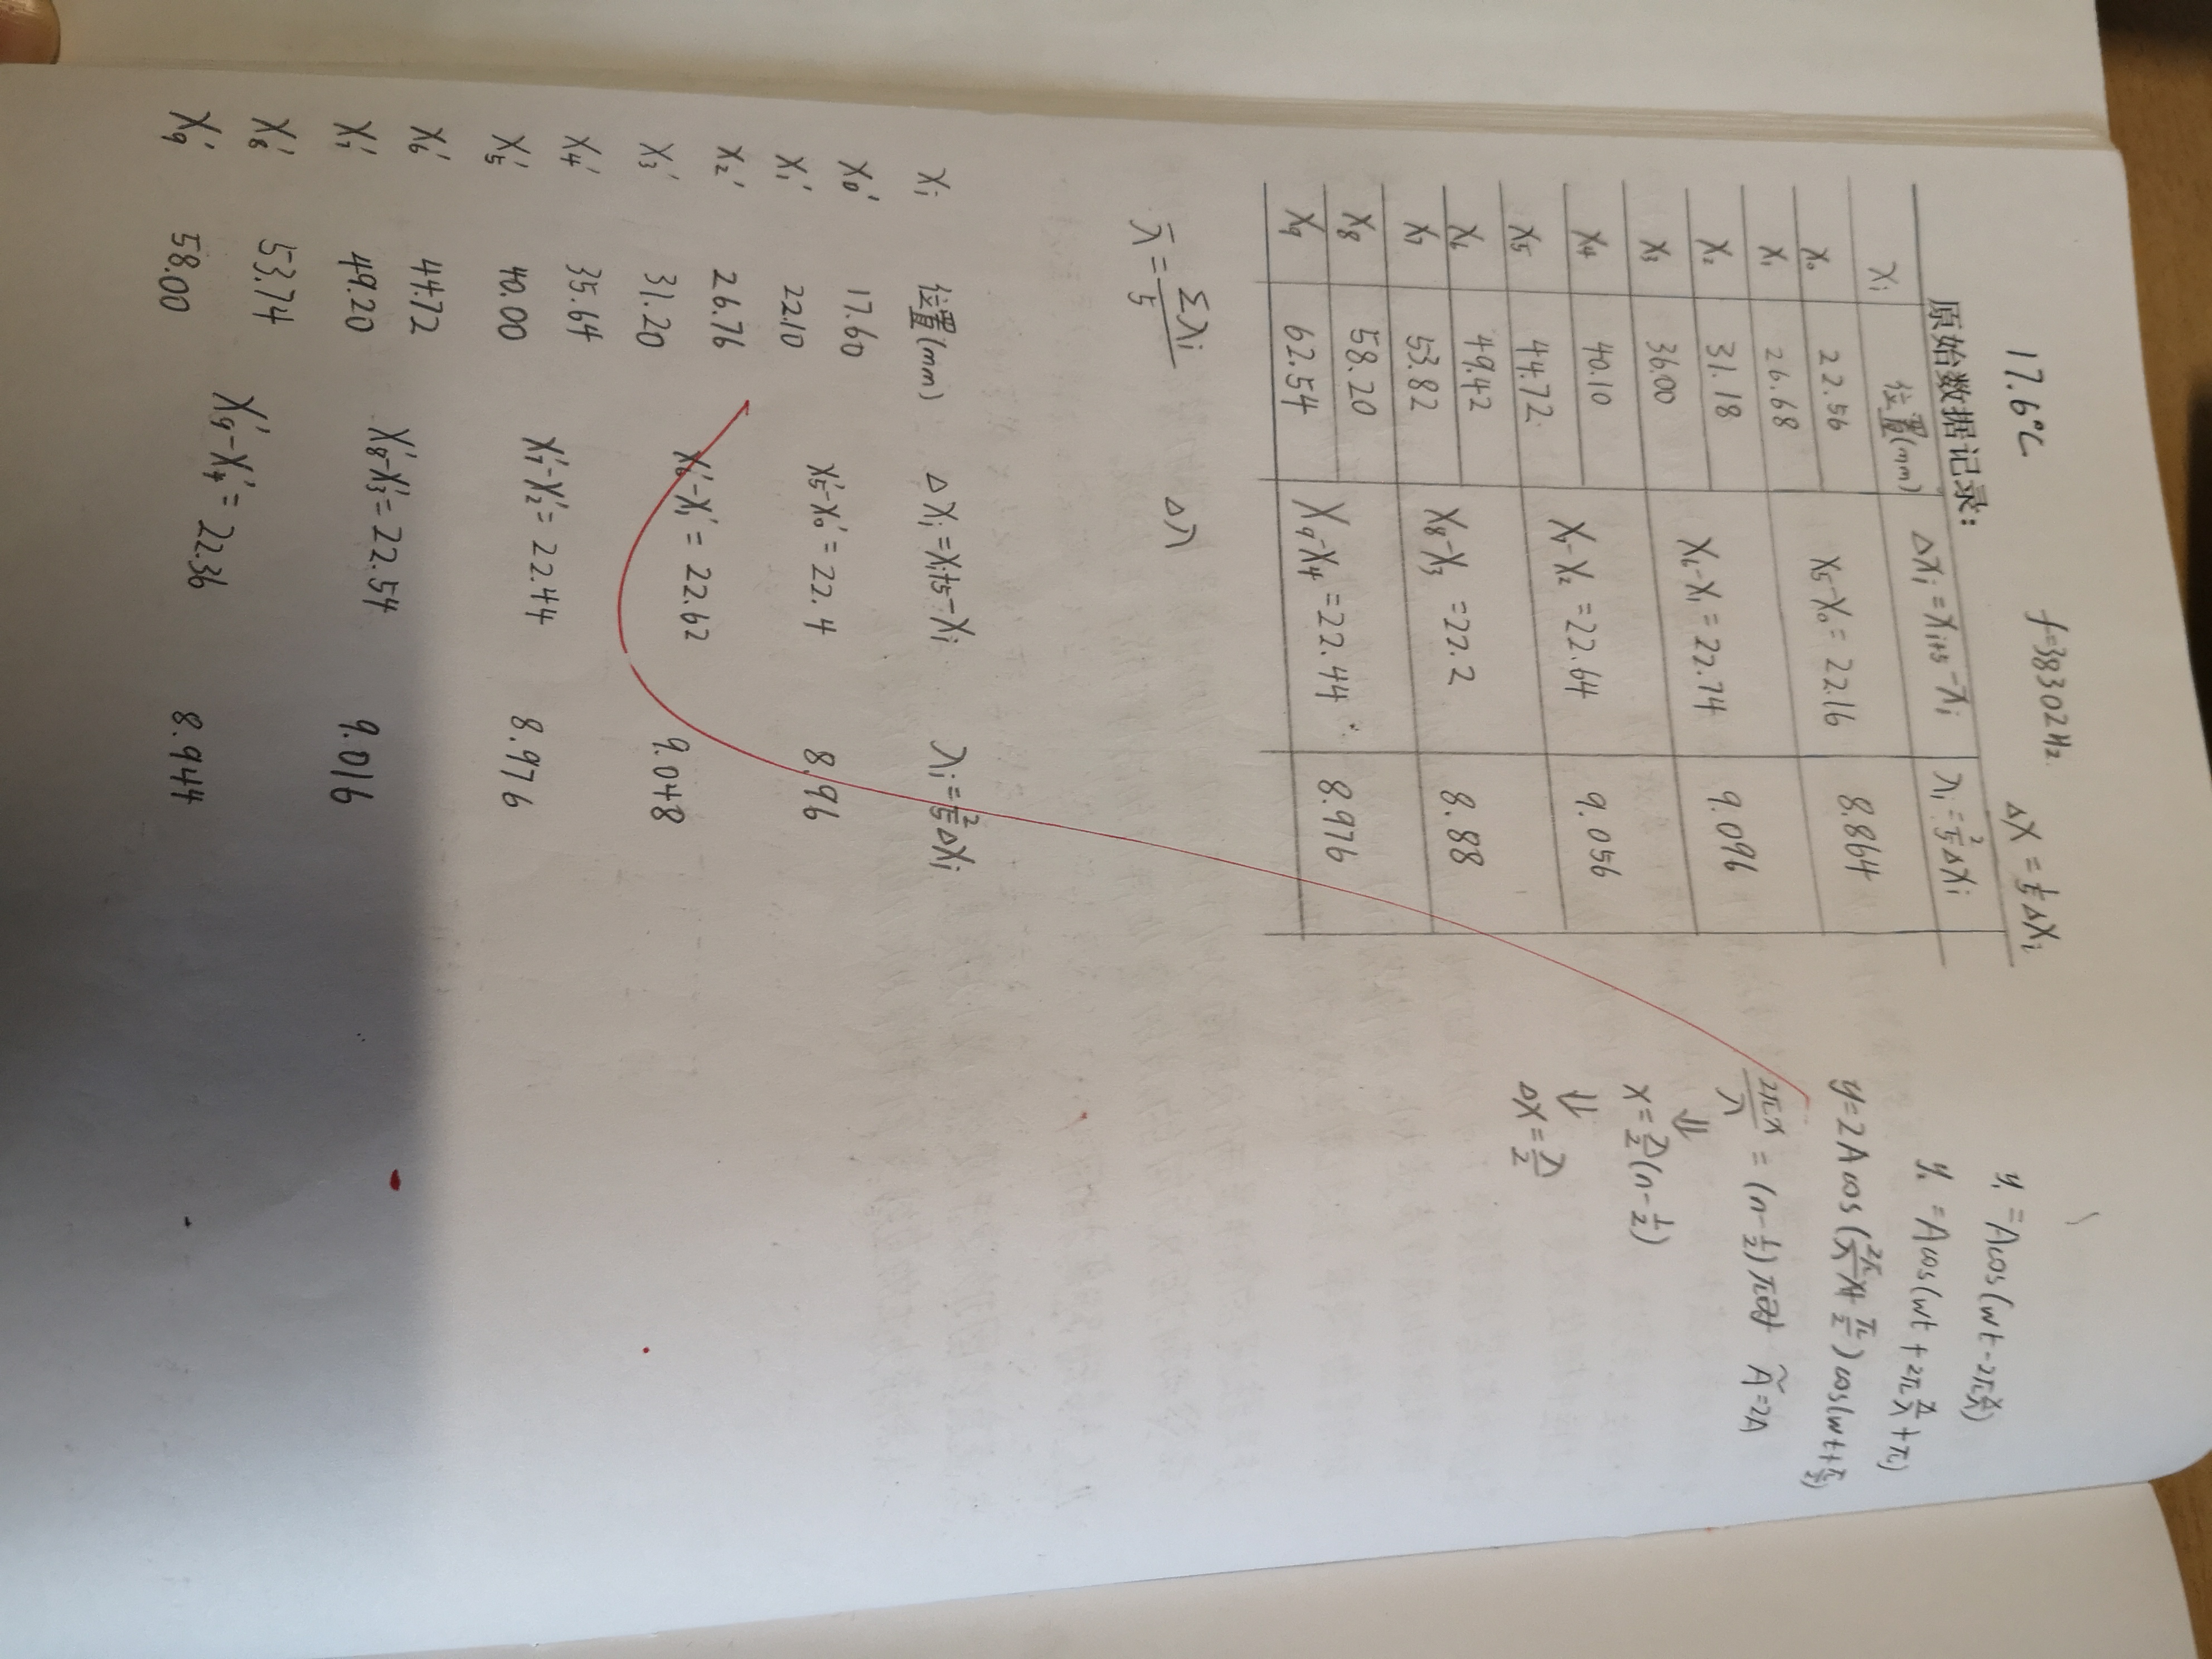 17.6℃ f=38302Hz ΔX = 1/5 ΔXi
原始数据记录:
Xi 位置(mm) ΔXi = Xi+5 - Xi λi = 2/5 ΔXi
X0 22.56 X5-X0 = 22.16 8.864
X1 26.68
X2 31.18 X6-X1 = 22.74 9.096
X3 36.00
X4 40.10 X7-X2 = 22.64 9.056
X5 44.72
X6 49.42 X8-X3 = 22.2 8.88
X7 53.82
X8 58.20 X9-X4 = 22.44 8.976
X9 62.54
λ̄ = Σλi/5 Δλ
Xi 位置(mm) ΔXi = Xi+5 - Xi λi = 2/5 ΔXi
X0' 17.60
X1' 22.10 X5'-X0' = 22.4 8.96
X2' 26.76
X3' 31.20 X6'-X1' = 22.62 9.048
X4' 35.64
X5' 40.00 X7'-X2' = 22.44 8.976
X6' 44.72
X7' 49.20 X8'-X3' = 22.54 9.016
X8' 53.74
X9' 58.00 X9'-X4' = 22.36 8.944
y1 = Acos(wt - 2π x/λ)
= Acos(wt + 2π x/λ + π)
y = 2Acos(2π/λ x + π/2)cos(wt + π/2)
2πx/λ = (n - 1/2)π Ã = 2A
⇓
X = λ/2 (n - 1/2)
⇓
ΔX = λ/2